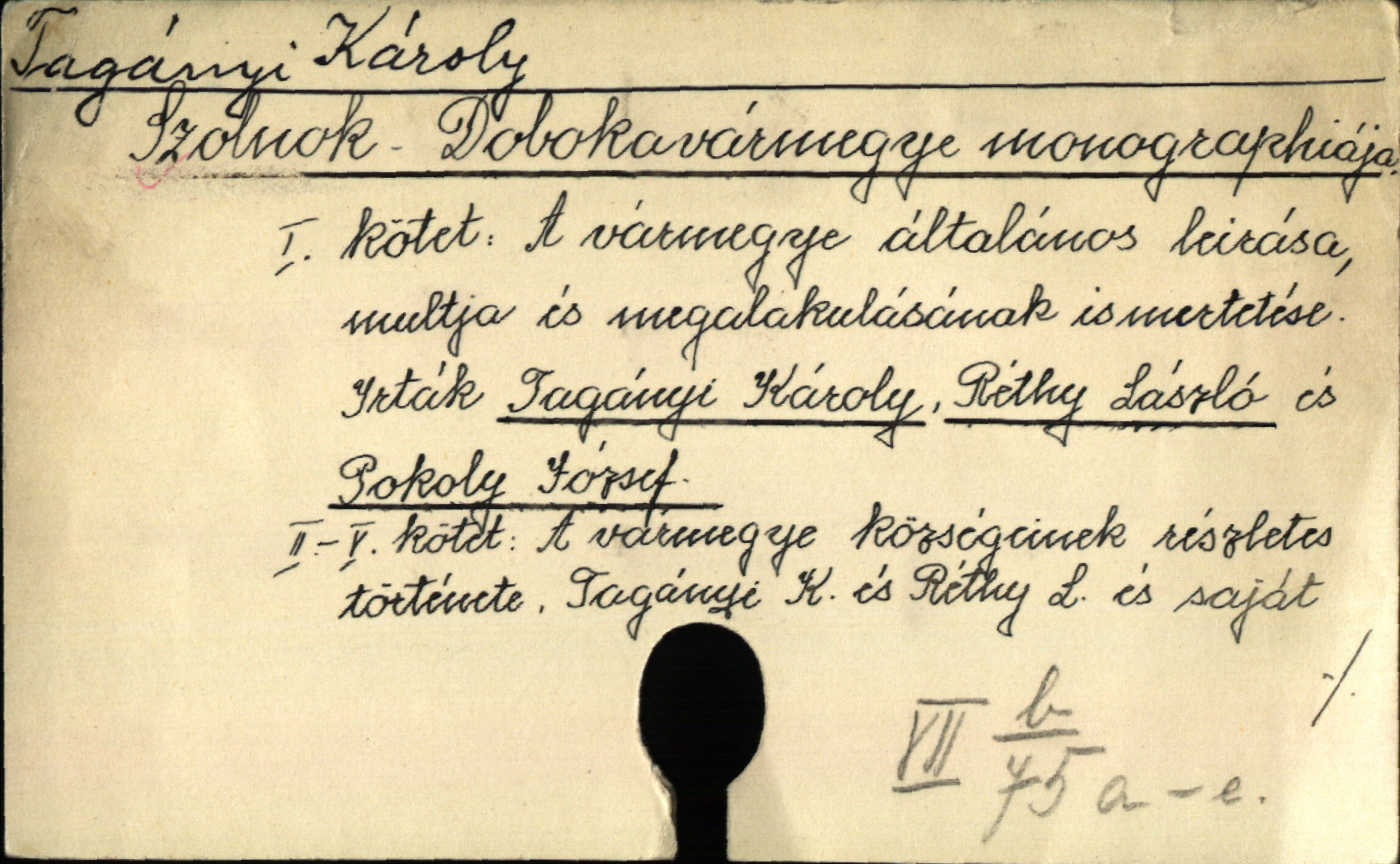 Tagányi Károly
Szolnok - Dobokavármegye monographiája.
I. kötet: A vármegye általános leirása,
multja és megalakulásának ismertetése.
Irták Tagányi Károly, Réthy László és
Pokoly József.
II.-V. kötet: A vármegye községeinek részletes
története. Tagányi K. és Réthy L. és saját
./.
VII b/75 a-e.